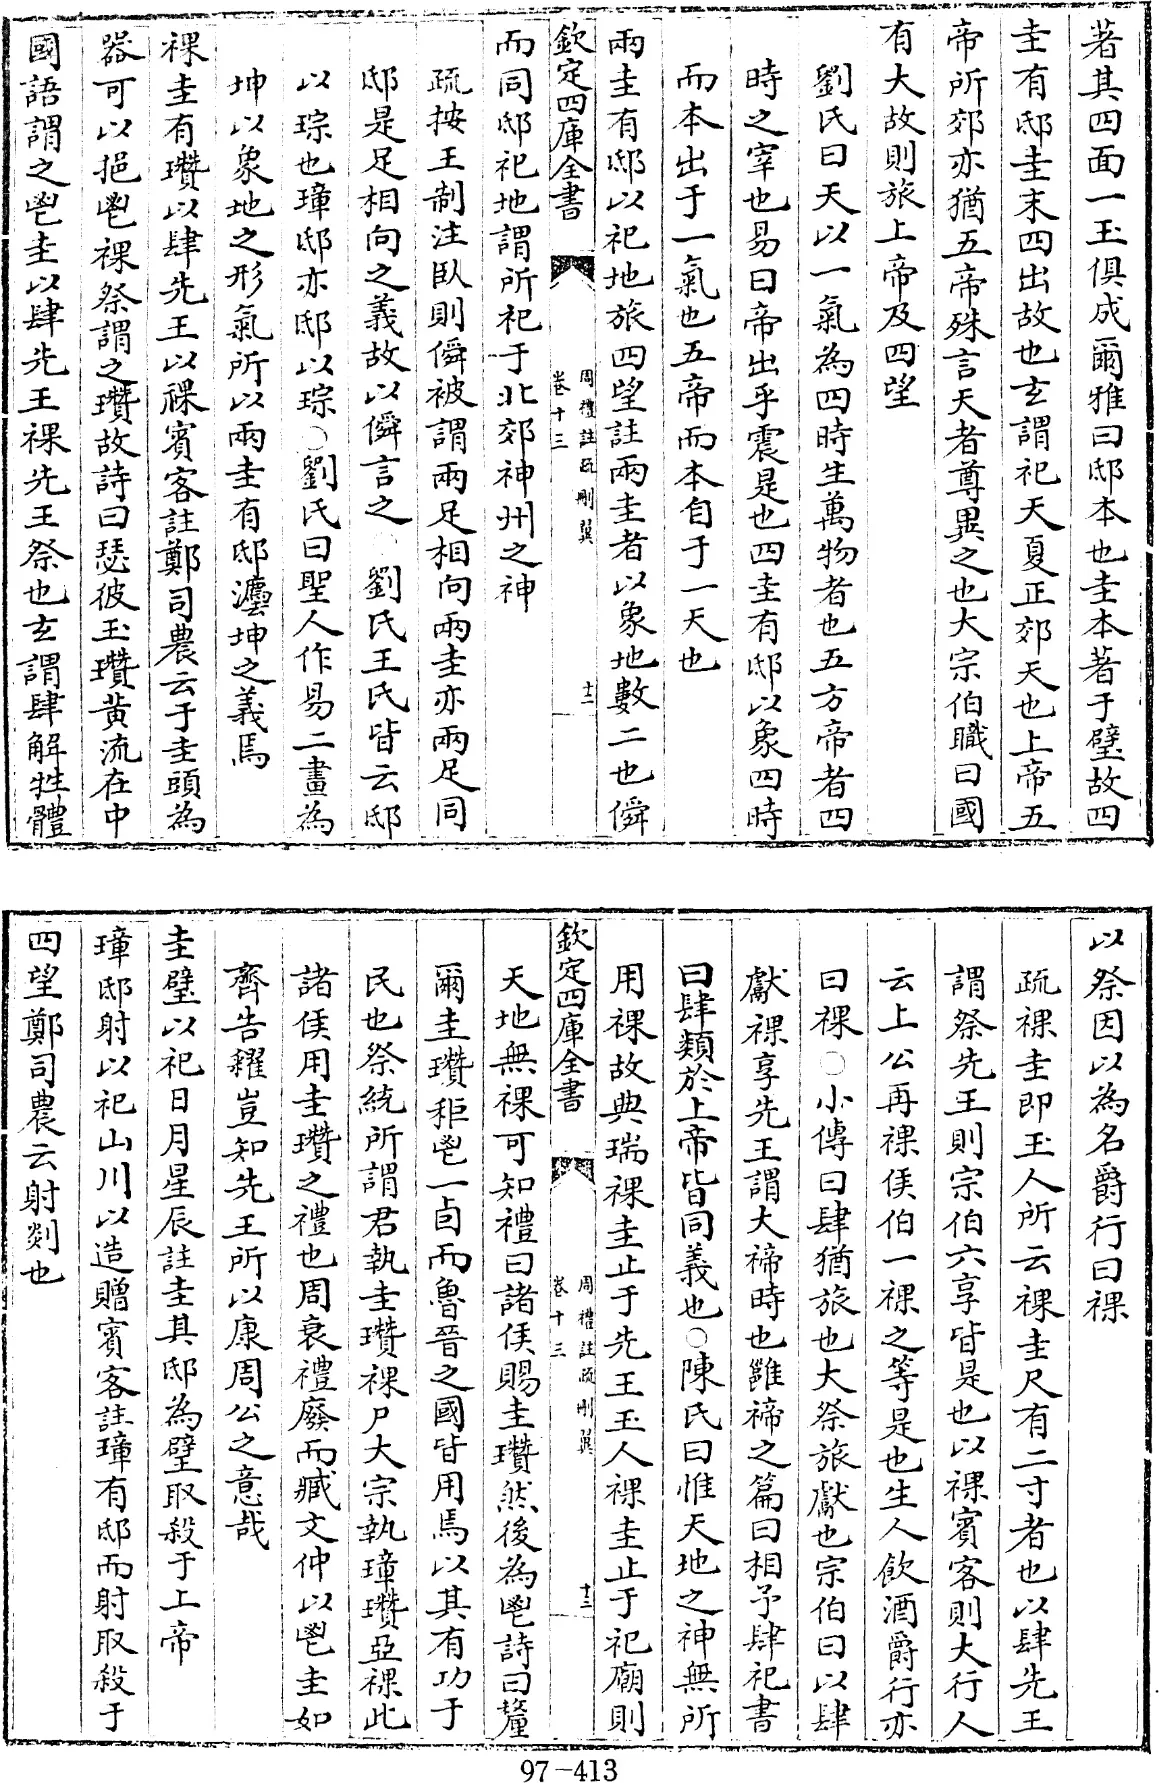 著其四面一玉俱成爾雅曰邸本也圭本著于璧故四
圭有邸圭末四出故也玄謂祀天夏正郊天也上帝五
帝所郊亦猶五帝殊言天者尊異之也大宗伯職曰國
有大故則旅上帝及四望
劉氏曰天以一氣為四時生萬物者也五方帝者四
時之宰也易曰帝出乎震是也四圭有邸以象四時
而本出于一氣也五帝而本自于一天也
兩圭有邸以祀地旅四望註兩圭者以象地數二也僢
欽定四庫全書
周禮註疏刪翼
卷十三
十二
而同邸祀地謂所祀于北郊神州之神
疏按王制注臥則僢被謂兩足相向兩圭亦兩足同
邸是足相向之義故以僢言之○劉氏王氏皆云邸
以琮也璋邸亦邸以琮○劉氏曰聖人作易二畫為
坤以象地之形氣所以兩圭有邸灋坤之義焉
祼圭有瓚以肆先王以祼賓客註鄭司農云于圭頭為
器可以挹鬯祼祭謂之瓚故詩曰瑟彼玉瓚黃流在中
國語謂之鬯圭以肆先王祼先王祭也玄謂肆解牲體
以祭因以為名爵行曰祼
疏祼圭即玉人所云祼圭尺有二寸者也以肆先王
謂祭先王則宗伯六享皆是也以祼賓客則大行人
云上公再祼侯伯一祼之等是也生人飲酒爵行亦
曰祼○小傳曰肆猶旅也大祭旅獻也宗伯曰以肆
獻祼享先王謂大禘時也雖禘之篇曰相予肆祀書
曰肆類於上帝皆同義也○陳氏曰惟天地之神無所
用祼故典瑞祼圭止于先王玉人祼圭止于祀廟則
欽定四庫全書
周禮註疏刪翼
卷十三
十三
天地無祼可知禮曰諸侯賜圭瓚然後為鬯詩曰釐
爾圭瓚秬鬯一卣而魯晉之國皆用焉以其有功于
民也祭統所謂君執圭瓚祼尸大宗執璋瓚亞祼此
諸侯用圭瓚之禮也周衰禮廢而臧文仲以鬯圭如
齊告糴豈知先王所以康周公之意哉
圭璧以祀日月星辰註圭其邸為璧取殺于上帝
璋邸射以祀山川以造贈賓客註璋有邸而射取殺于
四望鄭司農云射剡也
97-413